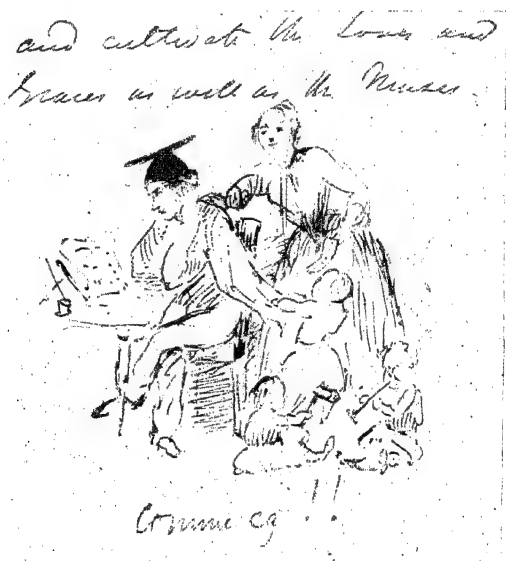 and cultivate the Loves and
Graces as well as the Muses.
Comme ça